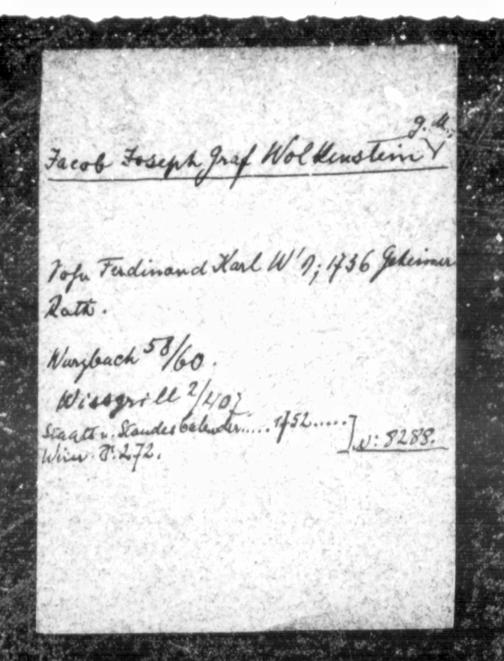 g. R.
Jacob Joseph Graf Wolkenstein
Sohn Ferdinand Karl W's; 1736 Geheimer
Rath.
Wurzbach 58/60.
Wissgrill 2/40
Staats u. Standes Calender..... 1752.....
Wien S. 272.
N: 8288.